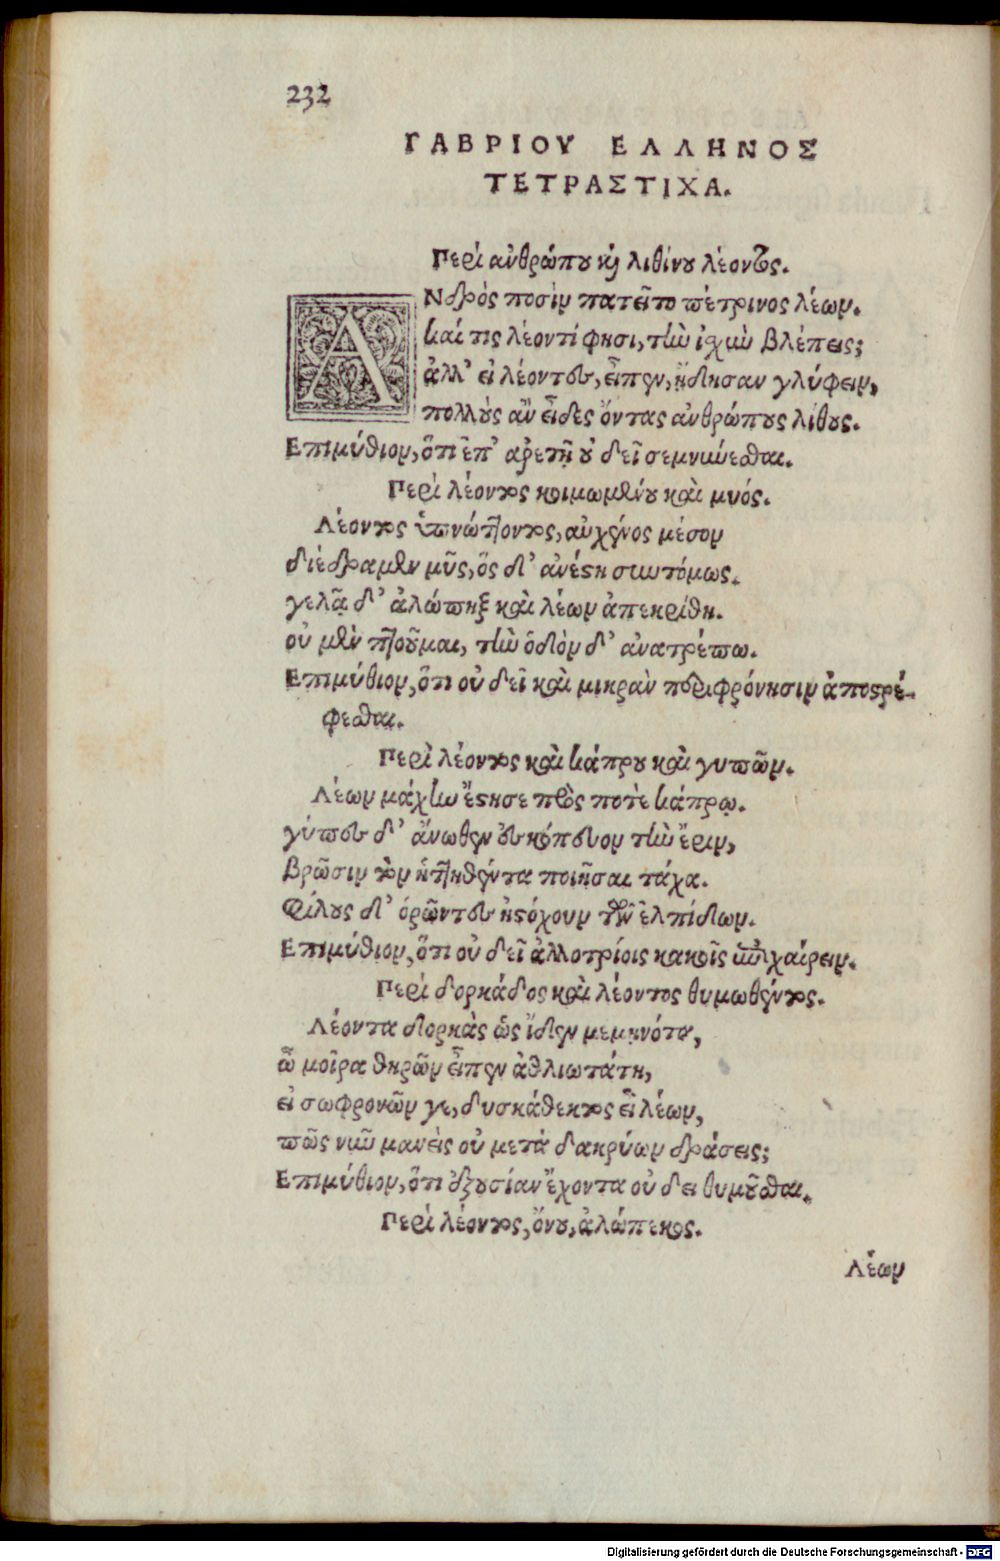 232
ΓΑΒΡΙΟΥ ΕΛΛΗΝΟΣ
ΤΕΤΡΑΣΤΙΧΑ.
Περὶ ἀνθρώπου καὶ λιθίνου λέοντος.
ΑΝδρὸς ποσὶν πατεῖτο πέτρινος λέων.
καί τις λέοντί φησι, τὴν ἰσχὺν βλέπεις;
ἀλλ' εἰ λέοντες, εἶπεν, ᾔδησαν γλύφειν,
πολλοὺς ἂν εἶδες ὄντας ἀνθρώπους λίθους.
Επιμύθιον, ὅτι ἐπ' ἀρετῇ οὐ δεῖ σεμνύνεσθαι.
Περὶ λέοντος κοιμωμένου καὶ μυός.
Λέοντος ὑπνώττοντος, αὐχένος μέσον
διέδραμεν μῦς, ὅς δ' ἀνέστη συντόμως.
γελᾷ δ' ἀλώπηξ καὶ λέων ἀπεκρίθη.
οὐ μὲν πτοοῦμαι, τὴν ὁδὸν δ' ἀνατρέπω.
Επιμύθιον, ὅτι οὐ δεῖ καὶ μικρὰν περιφρόνησιν ἀποστρέ-
φεσθαι.
Περὶ λέοντος καὶ κάπρου καὶ γυπῶν.
Λέων μάχην ἔστησε πρὸς ποτὲ κάπρῳ.
γύπες δ' ἄνωθεν ἐσκόπευον τὴν ἔριν,
βρῶσιν τὸν ἡττηθέντα ποιῆσαι τάχα.
Φίλους δ' ὁρῶντες ἠστόχουν τῶν ἐλπίδων.
Επιμύθιον, ὅτι οὐ δεῖ ἀλλοτρίοις κακοῖς ἐπιχαίρειν.
Περὶ δορκάδος καὶ λέοντος θυμωθέντος.
Λέοντα δορκὰς ὡς ἴδεν μεμηνότα,
ὦ μοῖρα θηρῶν εἶπεν ἀθλιωτάτη,
εἰ σωφρονῶν γε, δυσκάθεκτος εἶ λέων,
πῶς νῦν μανεὶς οὐ μετὰ δακρύων δράσεις;
Επιμύθιον, ὅτι ἐξουσίαν ἔχοντα οὐ δεῖ θυμοῦσθαι.
Περὶ λέοντος, ὄνου, ἀλώπεκος.
Λέων
Digitalisierung gefördert durch die Deutsche Forschungsgemeinschaft - DFG